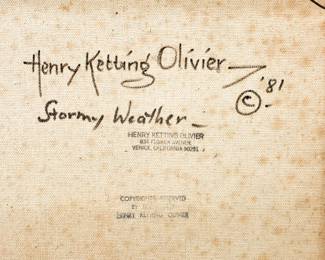 Henry Ketting Olivier '81
©
Stormy Weather
HENRY KETTING OLIVIER
VENICE, CALIFORNIA 90291
COPYRIGHTS RESERVED
BY
HENRY KETTING OLIVIER